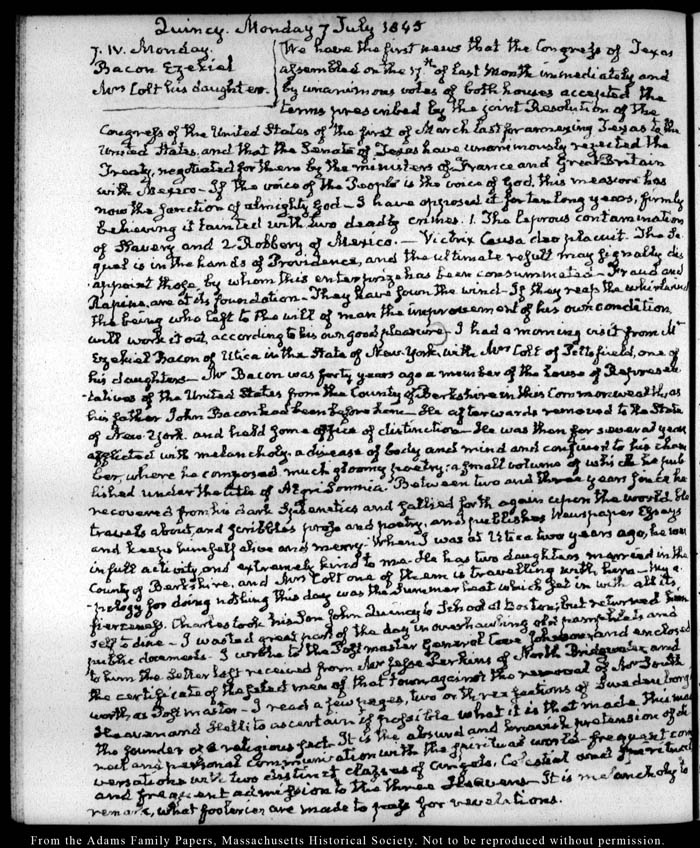 Quincy. Monday 7 July 1845
7. IV. Monday.
Bacon Ezekiel
Mrs Colt his daughter.
We have the first news that the Congress of Texas
assembled on the 17th of last Month immediately and
by unanimous votes of both houses accepted the
terms prescribed by the joint Resolution of the
Congress of the United States of the first of March last for annexing Texas to the
United States, and that the Senate of Texas have unanimously rejected the
Treaty, negotiated for them by the ministers of France and Great Britain
with Mexico — If the voice of the People is the voice of God, this measure has
now the sanction of almighty God — I have opposed it for ten long years, firmly
believing it tainted with two deadly crimes. 1. The leprous contamination
of Slavery and 2. Robbery of Mexico. — Victrix Causa deo placuit. The Se-
quel is in the hands of Providence, and the ultimate result may signally dis
appoint those, by whom this enterprize has been consummated — Fraud and
Rapine, are at its foundation — They have sown the wind — If they reap the whirlwind
the being who left to the will of man the improvement of his own condition,
will work it out, according to his own good pleasure — I had a morning visit from Mr
Ezekiel Bacon of Utica in the State of New-York, with Mrs Colt of Pittsfield, one of
his daughters — Mr Bacon was forty years ago a member of the house of Represen
-tatives of the United States from the County of Berkshire in this Commonwealth, as
his father John Bacon had been before him — He afterwards removed to the State
of New-York. and held some office of distinction — He was then for several years
afflicted with melancholy, a disease of body and mind and confined to his cham
ber, where he composed much gloomy poetry; a small volume of which he pub
lished under the title of Aegri Somnia. Between two and three years since he
recovered from his dark and sallied forth again upon the world. He
travels about, and scribbles prose and poetry, and publishes Newspaper Essays
and keeps himself alive and merry. When I was at Utica two years ago, he was
in full activity, and extremely kind to me. He has two daughters married in the
County of Berkshire, and Mrs Colt one of them is travelling with him — My a-
-pology for doing nothing this day was the Summer heat which set in with all its
fierceness. Charles took his Son John Quincy to School at Boston; but returned him
self to dine — I wasted great part of the day in overhauling old pamphlets and
public documents. I wrote to the Postmaster General Cave Johnson, and enclosed
to him the Letter last received from Mr Jesse Perkins of North Bridgewater, and
the certificate of the select men of that town against the removal of Mr South
worth as Post master — I read a few pages, two or three sections of Swedenborg's
Heaven and Hell to ascertain if possible what it is that made this man
the founder of a religious sect — It is the absurd and knavish pretension of di
rect and personal communication with the spiritual world — frequent con
versations with two distinct classes of angels, Celestial and Spiritual
and frequent admission to the three Heavens — It is melancholy to
remark, what fooleries are made to pass for revelations.
From the Adams Family Papers, Massachusetts Historical Society. Not to be reproduced without permission.